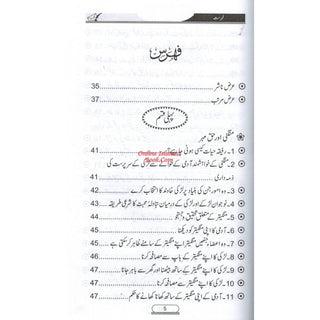 فہرست
فہرس
عرض ناشر 35
عرض مرتب 37
پہلی قسم
منگنی اور حق مہر
Online Islamic
Book.Com
1- رفیقۂ حیات کیسی ہونی چاہیے؟ 41
2- منگنی کے خواہشمند آدمی کے حوالے سے لڑکی کے سرپرست کی
ذمہ داری 41
3- وہ امور جن کی بنیاد پر لڑکی خاوند کا انتخاب کرے 42
4- نوجوان لڑکے اور لڑکی کے درمیان تبادلۂ محبت کا شرعی طریقہ 43
5- منگیتر کے متعلق تحقیق و جستجو 44
6- آدمی کا اپنی منگیتر کو دیکھنا 45
7- وہ اعضاء جنھیں منگیتر اپنے منگیتر کے سامنے ظاہر کر سکتی ہے 45
8- لڑکی کا اپنے منگیتر کے باپ سے مصافحہ کرنا 46
9- لڑکی کا اپنے منگیتر کے ساتھ بیٹھنا اور گھر سے باہر جانا 47
10- لڑکی کا اپنے منگیتر سے مصافحہ کرنا 47
11- آدمی کے اپنی منگیتر کے ساتھ کھانا کھانے کا حکم 47
5